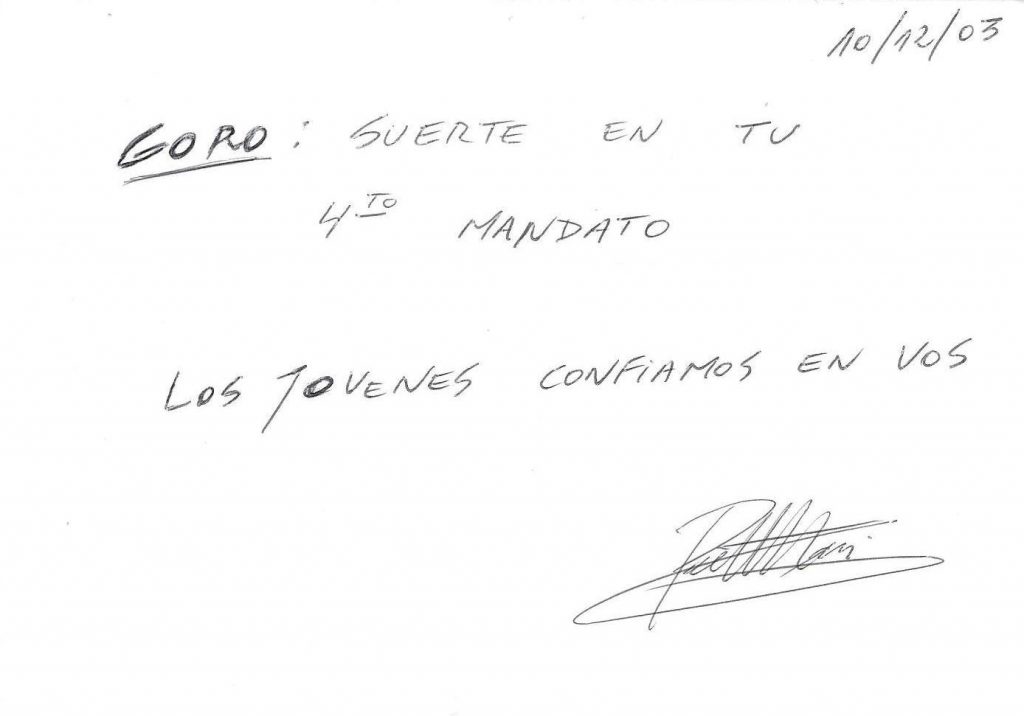 10/12/03
GORO: SUERTE EN TU
4TO MANDATO
LOS JOVENES CONFIAMOS EN VOS